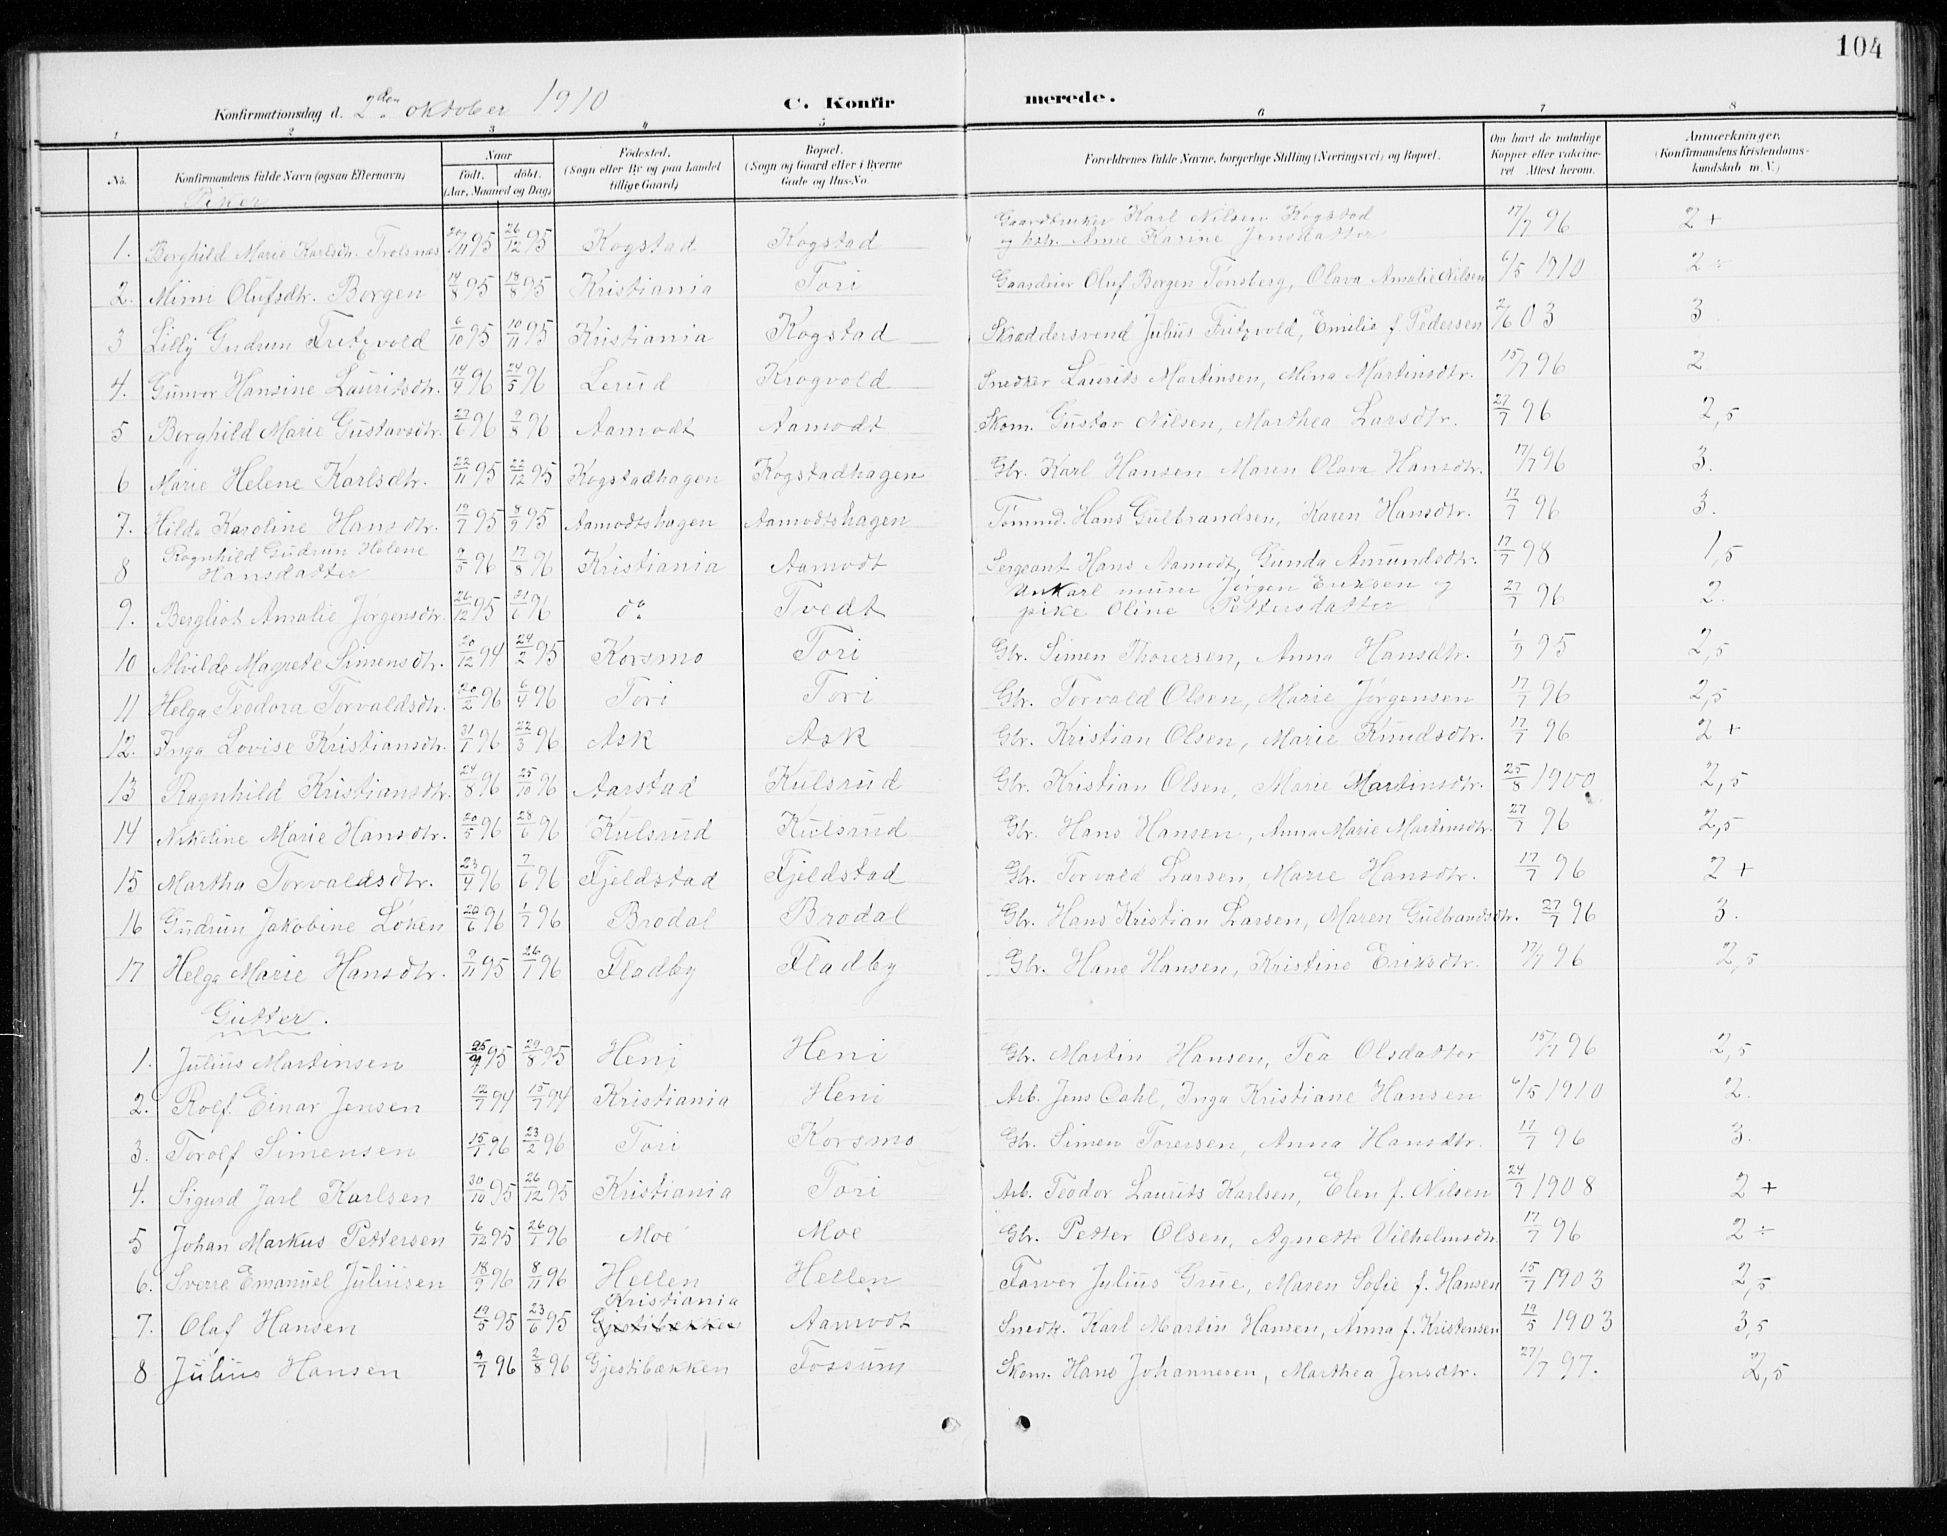 104
Konfirmationsdag d. 2den oktober 1910 C. Konfirmerede.
1 2 3 4 5 6 7 8
No. Konfirmandens fulde Navn (ogsaa Efternavn) Naar født. døbt. (Aar, Maaned og Dag) Fødested. (Sogn eller By og paa Landet tillige Gaard) Bopæl. (Sogn og Gaard eller i Byerne Gade og Hus-No. Forældrenes fulde Navne, borgerlige Stilling (Næringsvei) og Bopæl. Om havt de naturlige Kopper eller vakcineret Attest herom. Anmærkninger. (Konfirmandens Kristendomskundskab m. V.)
Piker
1. Borghild Marie Karlsdtr. 20/11 95 26/12 95 Kogstad Kogstad Gaardbruker Karl Nilsen Kogstad og hstr. Anne Karine Jensdatter 17/7 96 2+
2. Mimi Olufsdtr. Borgen 14/8 95 18/8 95 Kristiania Tori Gaardeier Oluf Borgen Tønsberg, Olava Amalie Nilsen 6/5 1910 2÷
3 Lilly Gudrun Fritzvold 6/10 95 10/11 95 Kristiania Kogstad Skræddersvend Julius Fritzvold, Emilie f. Pedersen 2/6 03 3.
4. Gunvor Hansine Lauritsdtr. 14/4 96 24/5 96 Lerud Krogvold Snedker Laurits Martinsen, Mina Martinsdtr. 15/7 96 2
5 Borghild Marie Gustavsdtr. 27/6 96 9/8 96 Aamodt Aamodt Skom. Gustav Nilsen, Marthea Larsdtr. 27/7 96 2,5
6 Marie Helene Karlsdtr. 22/11 95 22/12 95 Kogstadhagen Kogstadhagen Gbr. Karl Hansen Maren Olava Hansdtr. 17/7 96 3.
7. Hilda Karoline Hansdtr. 19/7 95 8/9 95 Aamodtshagen Aamodtshagen Tømmd. Hans Gulbrandsen, Karen Hansdtr. 17/7 96 3.
8 Ragnhild Gudrun Helene Hansdatter 9/5 96 17/8 96 Kristiania Aamodt Sergeant Hans Aamodt, Gunda Amundsdtr. 17/7 98 1,5
9. Bergliot Amalie Jørgensdtr. 26/12 95 21/6 96 do Tvedt Unkarl murer Jørgen Eriksen og pike Oline Pettersdatter 27/7 96 2.
10 Alvilde Magrete Simensdtr. 20/12 94 24/2 95 Korsmo Tori Gbr. Simen Thorersen, Anna Hansdtr. 1/9 95 2,5
11 Helga Teodora Torvaldsdtr. 20/2 96 6/4 96 Tori Tori Gbr. Torvald Olsen, Marie Jørgensen 17/7 96 2,5
12. Inga Lovise Kristiansdtr. 31/1 96 22/3 96 Ask Ask Gbr. Kristian Olsen, Marie Knudsdtr. 17/7 96 2+
13 Ragnhild Kristiansdtr. 24/8 96 25/10 96 Aarstad Kulsrud Gbr. Kristian Olsen, Marie Martinsdtr. 25/8 1900 2,5
14 Nikoline Marie Hansdtr. 20/5 96 28/6 96 Kulsrud Kulsrud Gbr. Hans Hansen, Anna Marie Martinsdtr. 27/7 96 2,5
15 Martha Torvaldsdtr. 23/4 96 7/6 96 Fjeldstad Fjeldstad Gbr. Torvald Larsen, Marie Hansdtr. 17/7 96 2+
16 Gudrun Jakobine Løken 20/6 96 1/7 96 Brodal Brodal Gbr. Hans Kristian Larsen, Maren Gulbrandsdtr. 27/7 96 3.
17 Helga Marie Hansdtr. 9/11 95 26/1 96 Fladby Fladby Gbr. Hans Hansen, Kristine Eriksdtr. 17/7 96 2,5
Gutter.
1. Julius Martinsen 25/7 95 29/8 95 Heni Heni Gbr. Martin Hansen, Tea Olsdatter 15/7 96 2,5
2. Rolf Einar Jensen 12/7 94 15/7 94 Kristiania Heni Arb. Jens Dahl, Inga Kristiane Hansen 6/5 1910 2.
3. Torolf Simensen 15/1 96 23/2 96 Tori Korsmo Gbr. Simen Torersen, Anna Hansdtr. 17/7 96 3.
4. Sigurd Jarl Karlsen 30/10 95 26/12 95 Kristiania Tori Arb. Teodor Laurits Karlsen, Elen f. Nilsen 24/9 1908 2+
5 Johan Markus Pettersen 6/12 95 26/1 96 Moe Moe Gbr. Petter Olsen, Agnette Vilhelmsdtr. 17/7 96 2÷
6. Sverre Emanuel Juliusen 18/9 96 8/11 96 Hellen Hellen Farver Julius Grue, Maren Sofie f. Hansen 15/7 1903 2,5
7. Olaf Hansen 19/5 95 23/6 95 Kristiania Gjestibækken Aamodt Snedk. Karl Martin Hansen, Anna f. Kristensen 19/5 1903 3,5
8 Julius Hansen 9/7 96 2/8 96 Gjestibækken Fossum Skom. Hans Johannesen, Marthea Jensdtr. 27/7 97. 2,5